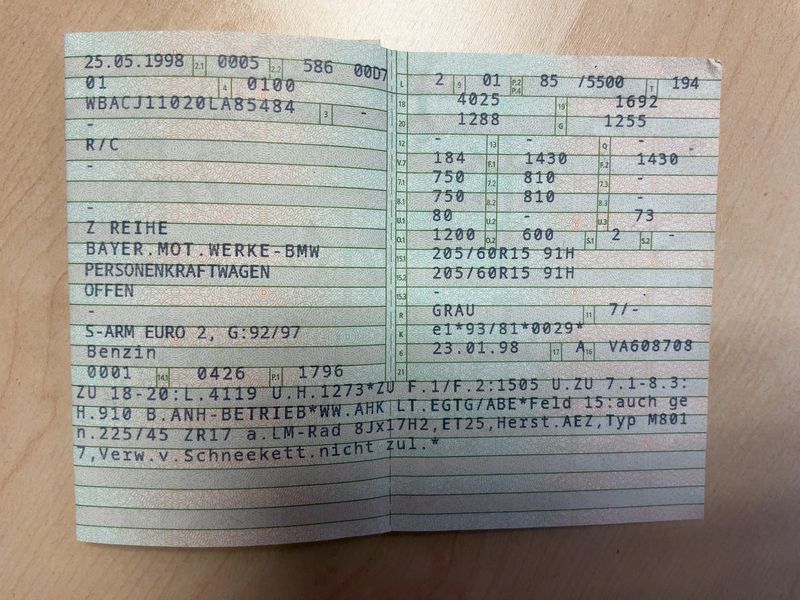 25.05.1998 2.1 0005 2.2 586 00D7
01 4 0100
WBACJ11020LA85484 3 -
-
R/C
-
-
Z REIHE
BAYER.MOT.WERKE-BMW
PERSONENKRAFTWAGEN
OFFEN
-
S-ARM EURO 2, G:92/97
Benzin
0001 14.1 0426 P.1 1796
L 2 9 01 P.2 P.4 85 /5500 T 194
18 4025 19 1692
20 1288 G 1255
12 - 13 - Q -
V.7 184 F.1 1430 F.2 1430
7.1 750 7.2 810 7.3 -
8.1 750 8.2 810 8.3 -
U.1 80 U.2 - U.3 73
O.1 1200 O.2 600 S.1 2 S.2 -
15.1 205/60R15 91H
15.2 205/60R15 91H
15.3 -
R GRAU 11 7/-
K e1*93/81*0029*
6 23.01.98 17 A 16 VA608708
21
ZU 18-20:L.4119 U.H.1273*ZU F.1/F.2:1505 U.ZU 7.1-8.3:
H.910 B.ANH-BETRIEB*WW.AHK LT.EGTG/ABE*Feld 15:auch ge
n.225/45 ZR17 a.LM-Rad 8Jx17H2,ET25,Herst.AEZ,Typ M801
7,Verw.v.Schneekett.nicht zul.*